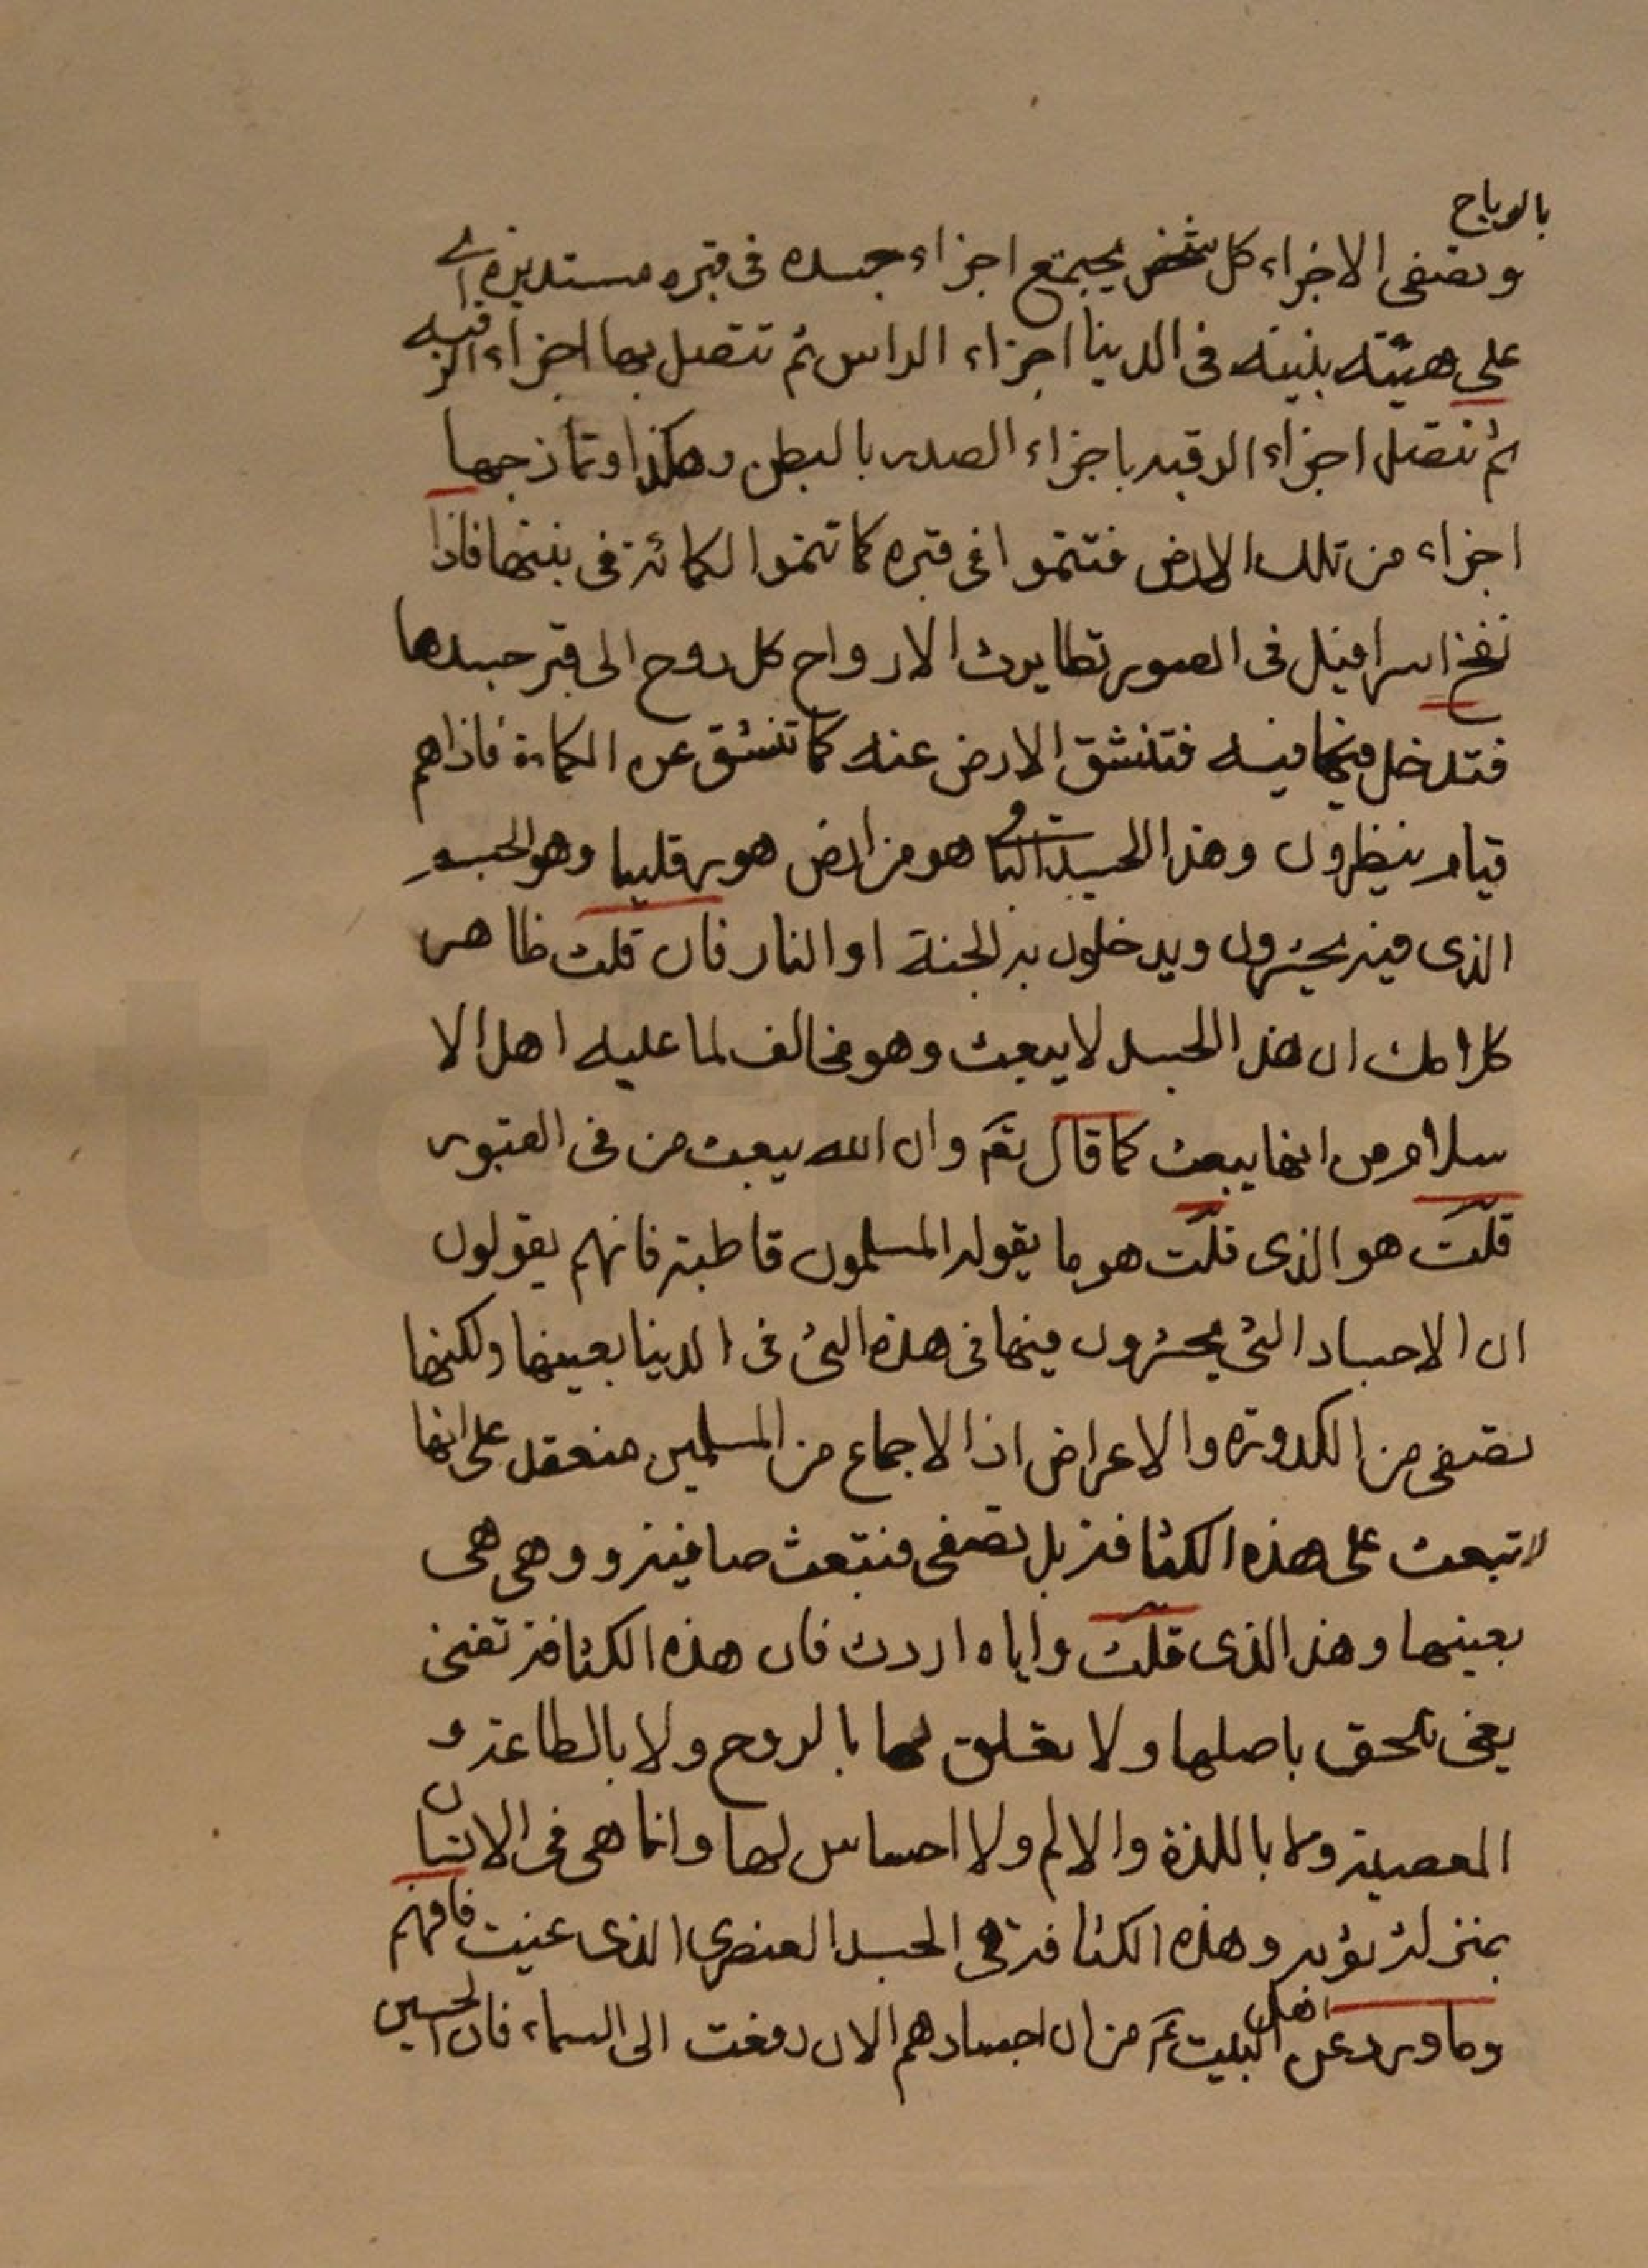 بالرياح
وتصفى الاجزاء كل شخص يجتمع اجزاء جسده فى قبره مستديرة اى
على هيئته بنيته فى الدنيا اجزاء الراس ثم تتصل بها اجزاء الرقبه
ثم تتصل اجزاء الرقبه باجزاء الصدر بالبطن وهكذا وتمازجها
اجزاء من تلك الارض فتنموا فى قبره كما تنموا الكمائة فى بنيتها فاذا
نفخ اسرافيل فى الصور تطايرت الارواح كل روح الى قبر جسدها
فتدخل فيه فتنشق الارض عنه كما تنشق عن الكماءة فاذا هم
قيام ينظرون وهذا الجسد الباقى هو من ارض هورقليا وهو الجسد
الذى فيه يحشرون ويدخلون به الجنة او النار فان قلت ظاهر
كلامك ان هذا الجسد لا يبعث وهو مخالف لما عليه اهل الا
سلام من انها يبعث كما قال تعم وان الله يبعث من فى القبور
قلت هو الذى قلت هو ما يقوله المسلمون قاطبة فانهم يقولون
ان الاجساد التى يحشرون فيها فى هذه التى فى الدنيا بعينها ولكنها
تصفى من الكدورة والاعراض اذا الاجماع من المسلمين منعقد على انها
لا تبعث على هذه الكثافة بل تصفى فتبعث صافية و وهى هى
بعينها وهذا الذى قلت واياه اردت فان هذه الكثافة تفنى
يعنى تلحق باصلها ولا تعلق لها بالروح ولا بالطاعة و
المعصية ولا باللذة والالم ولا احساس لها وانما هى فى الانسان
بمنزلة ثوبه وهذه الكثافة هى الجسد العنصرى الذى عنيت فافهم
وما ورد عن اهل البيت ع من ان اجسادهم الان رفعت الى السماء فان الحسين